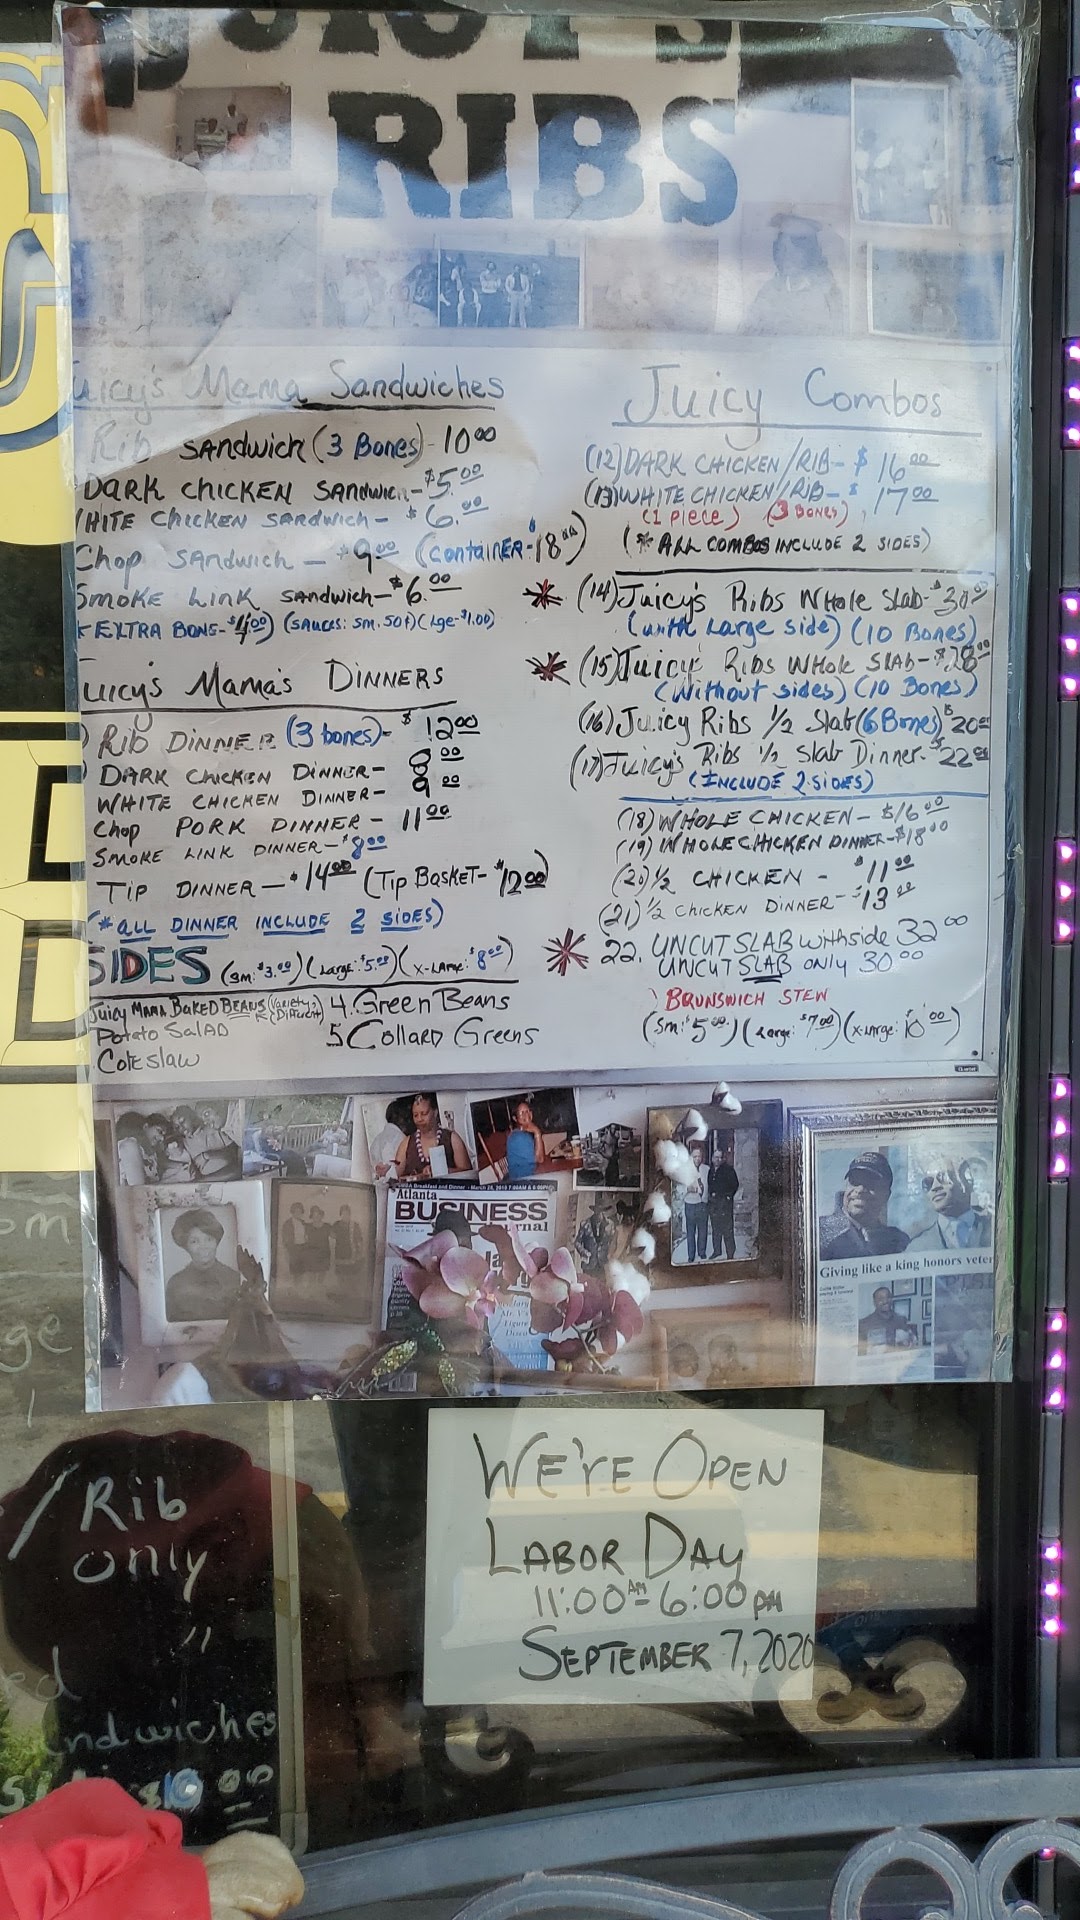 RIBS
Juicy's Mama Sandwiches
Rib Sandwich (3 Bones)- 10.00
Dark Chicken Sandwich- $5.00
White Chicken Sandwich- $6.00
Chop Sandwich- $9.00 (Container- 18.00)
Smoke Link Sandwich- $6.00
* Extra Bone- (Sauces: Sm. 50¢) (Lge- $1.00)
Juicy's Mama's Dinners
Rib Dinner (3 bones)- $12.00
Dark Chicken Dinner- 8.00
White Chicken Dinner- 9.00
Chop Pork Dinner- 11.00
Smoke Link Dinner- $8.00
Tip Dinner- $14.00 (Tip Basket- $12.00)
(* All Dinner Include 2 Sides)
SIDES (Sm: $3.00) (Large: $5.00) (X-Large: $8.00)
Juicy Mama Baked Beans (Variety Different)
Potato Salad
Cole slaw
4. Green Beans
5 Collard Greens
Juicy Combos
(12) Dark Chicken/Rib- $16.00
(13) White Chicken/Rib- $17.00
(1 piece) (3 Bones)
(* All Combos Include 2 Sides)
* (14) Juicy's Ribs Whole Slab- $30.00
(with Large side) (10 Bones)
* (15) Juicy's Ribs Whole Slab- $28.00
(Without sides) (10 Bones)
(16) Juicy Ribs 1/2 Slab (6 Bones) $20.00
(17) Juicy's Ribs 1/2 Slab Dinner- $22.00
(Include 2 Sides)
(18) Whole Chicken- $16.00
(19) Whole Chicken Dinner- $18.00
(20) 1/2 Chicken - $11.00
(21) 1/2 Chicken Dinner- $13.00
* 22. Uncut Slab with side 32.00
Uncut Slab only 30.00
Brunswich Stew
(Sm: $5.00) (Large: $7.00) (X-Large: $10.00)
Atlanta
BUSINESS
Giving like a king honors veter
We're Open
Labor Day
11:00 AM - 6:00 pm
September 7, 2020
/Rib
only
ndwiches
$10.00